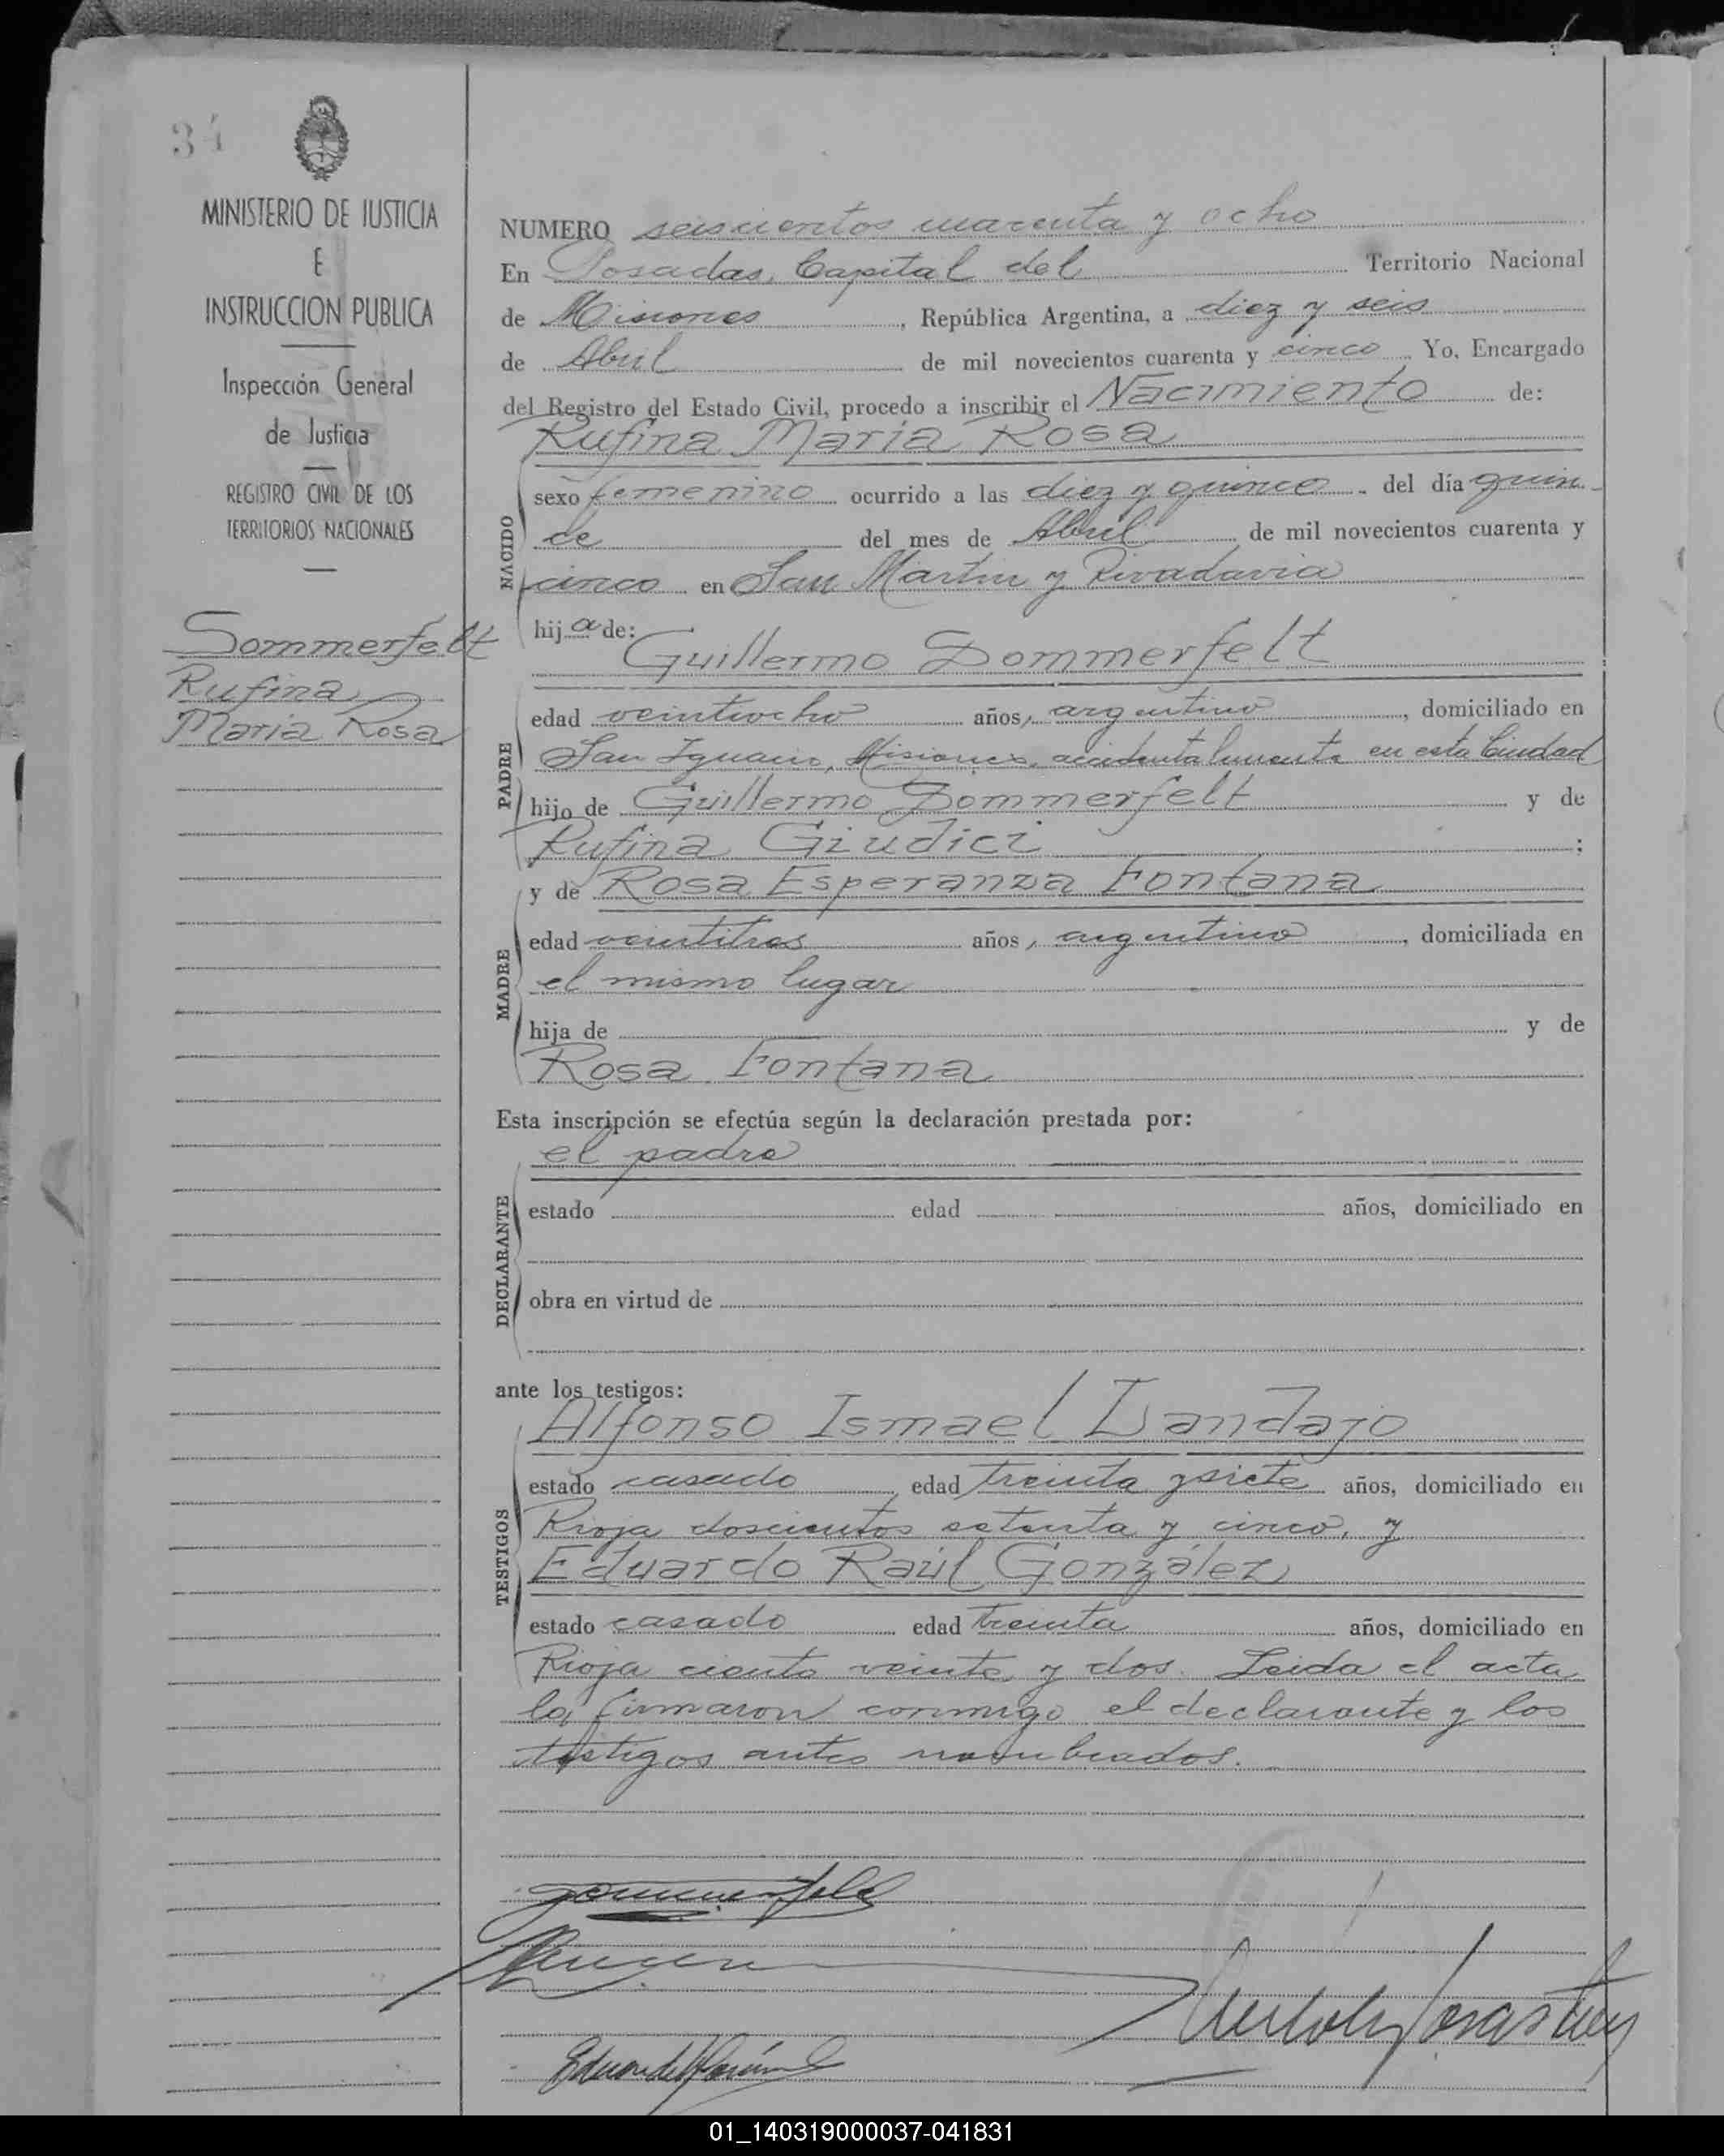 34
MINISTERIO DE JUSTICIA
E
INSTRUCCION PUBLICA
Inspección General
de Justicia
REGISTRO CIVIL DE LOS
TERRITORIOS NACIONALES
Sommerfelt
Rufina
Maria Rosa
NUMERO seiscientos cuarenta y ocho
En Posadas, Capital del Territorio Nacional
de Misiones, República Argentina, a diez y seis
de Abril de mil novecientos cuarenta y cinco Yo, Encargado
del Registro del Estado Civil, procedo a inscribir el Nacimiento de:
Rufina Maria Rosa
NACIDO
sexo femenino ocurrido a las diez y quince del día quin-
ce del mes de Abril de mil novecientos cuarenta y
cinco en San Martin y Rivadavia
hija de:
Guillermo Sommerfelt
PADRE
edad veintiocho años, argentino, domiciliado en
San Ignacio, Misiones, accidentalmente en esta Ciudad
hijo de Guillermo Sommerfelt y de
Rufina Giudici;
y de Rosa Esperanza Fontana
MADRE
edad veintitres años, argentina, domiciliada en
el mismo lugar
hija de y de
Rosa Fontana
Esta inscripción se efectúa según la declaración prestada por:
el padre
DECLARANTE
estado edad años, domiciliado en
obra en virtud de
ante los testigos:
Alfonso Ismael Landajo
TESTIGOS
estado casado edad treinta y siete años, domiciliado en
Rioja doscientos setenta y cinco, y
Eduardo Raúl González
estado casado edad treinta años, domiciliado en
Rioja ciento veinte y dos. Leida el acta
la firmaron conmigo el declarante y los
testigos antes nombrados.
Sommerfelt
01_140319000037-041831